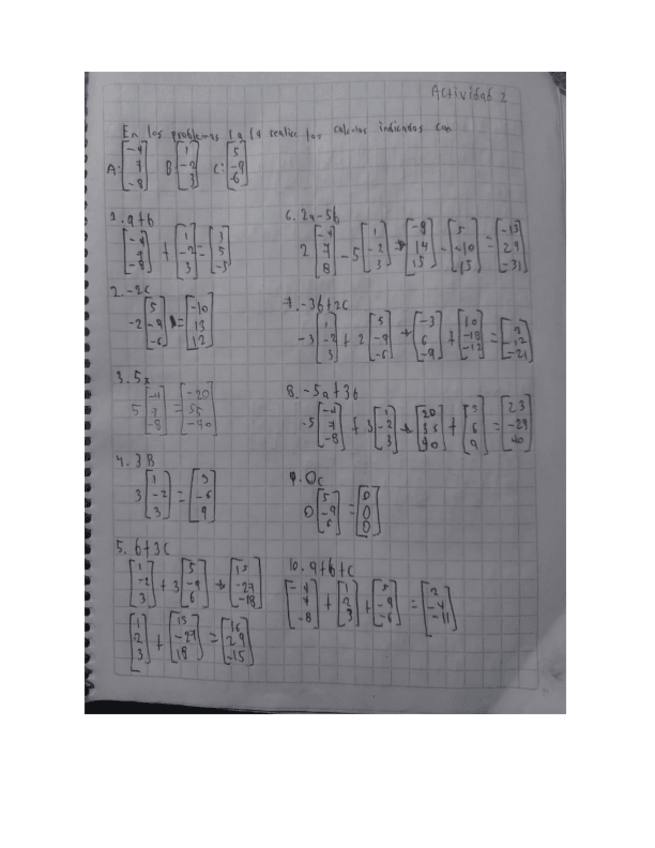 Actividad 2
En los problemas realice los calculos indicados con
A: [-4 7 -8] B [1 -2 3] C: [5 -9 6]
1. a+b
[-4 7 -8] + [1 -2 3] = [3 5 -5]
2. -2c
-2 [5 -9 -6] = [-10 13 12]
3. 5a
5 [-4 7 -8] = [-20 55 -40]
4. 3B
3 [1 -2 3] = [3 -6 9]
5. b+3c
[1 -2 3] + 3 [5 -9 6] → [15 -27 -18]
[1 2 3] + [15 -27 18] = [16 29 -15]
6. 2a-5b
2 [-4 7 8] - 5 [1 -2 3] → [-8 14 15] - [5 -10 15] = [-13 24 -31]
7. -3b+2c
-3 [1 -2 3] + 2 [5 -9 -6] → [-3 6 -9] + [10 -18 -12] = [7 -12 -21]
8. -5a+3b
-5 [-4 7 -8] + 3 [1 -2 3] → [20 35 40] + [3 6 9] = [23 -29 40]
9. 0c
0 [5 -9 6] = [0 0 0]
10. a+b+c
[-4 7 -8] + [1 2 3] + [5 -9 -6] = [2 -4 -11]